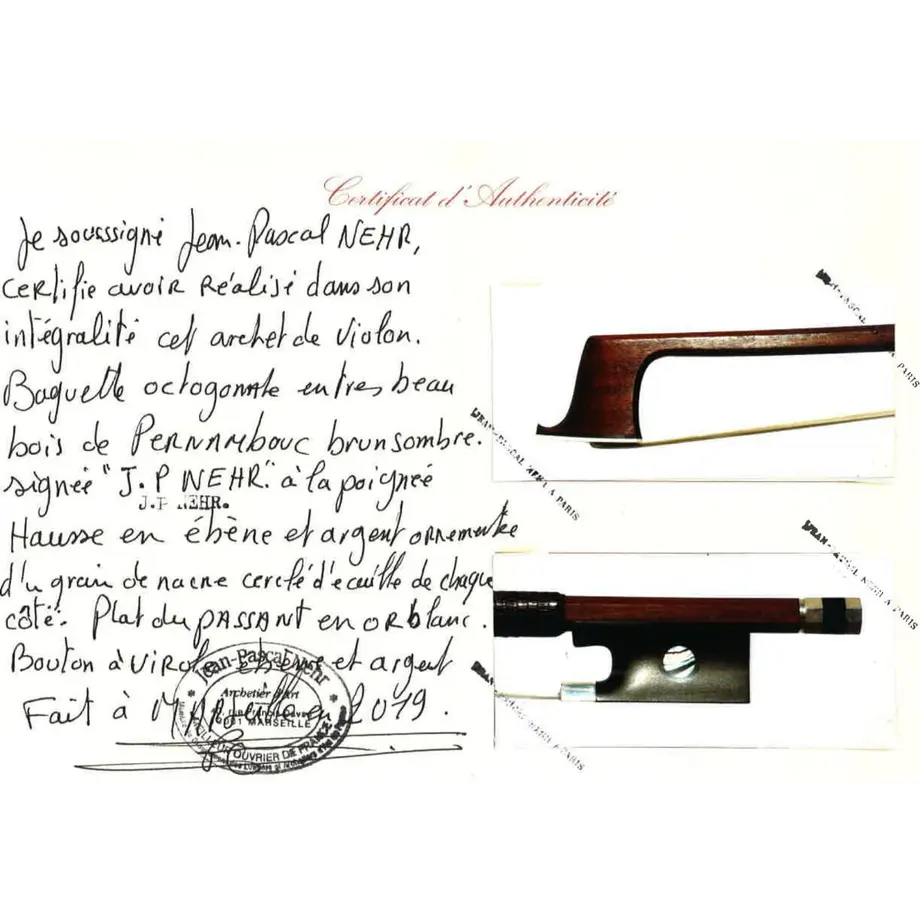 Certificat d'Authenticité
Je sousssigné Jean-Pascal NEHR,
certifie avoir réalisé dans son
intégralité cet archet de violon.
Baguette octogonale en tres beau
bois de PERNAMBOUC brun sombre.
signée "J.P NEHR." à la poignée
J.P NEHR.
Hausse en ébène et argent ornementée
d'un grain de nacre cerclé d'écaille de chaque
côté. Plat du PASSANT en or blanc.
Bouton à virole ébène et argent
Fait à Marseille en 2019.
Jean-Pascal Nehr
Archetier d'Art
MARSEILLE
OUVRIER DE FRANCE
A PARIS
A PARIS
A PARIS
A PARIS